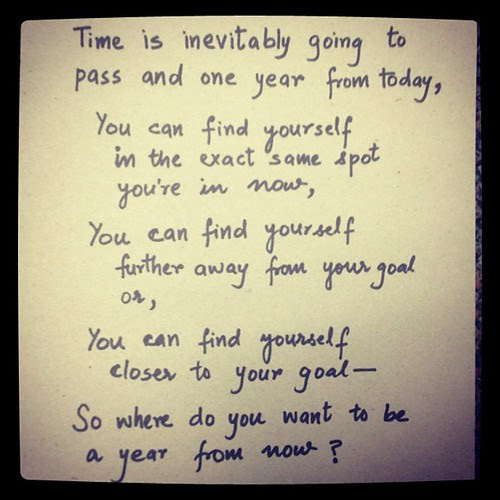 Time is inevitably going to
pass and one year from today,
You can find yourself
in the exact same spot
you're in now,
You can find yourself
further away from your goal
or,
You can find yourself
closer to your goal—
So where do you want to be
a year from now?